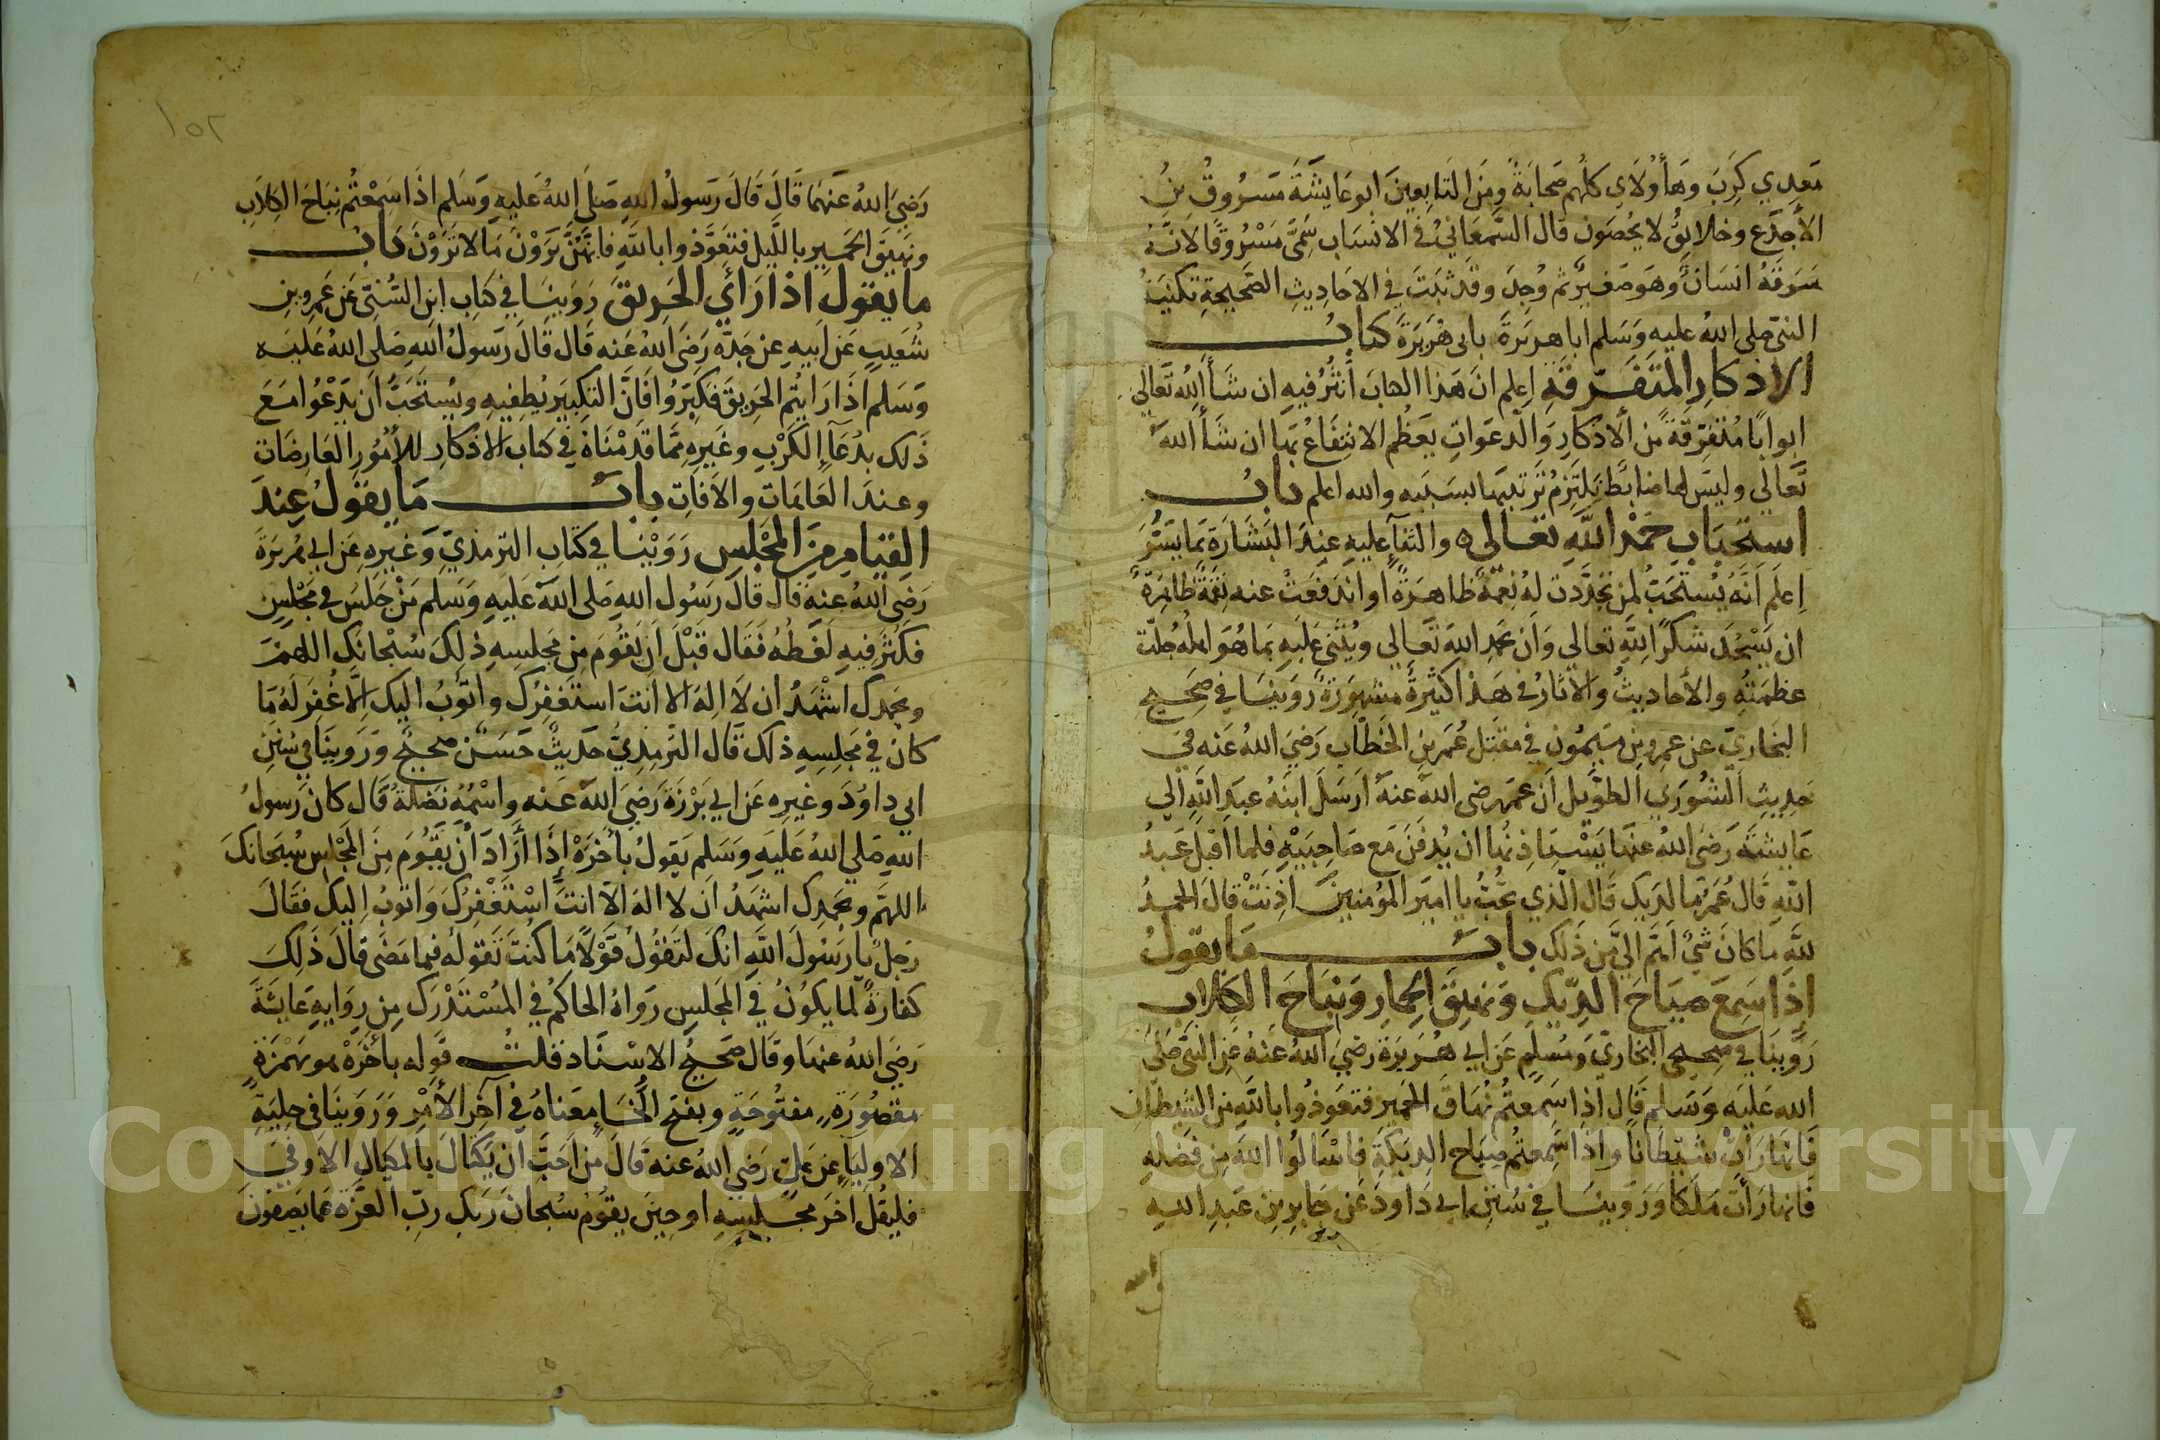 مَعدِي كَرِبَ وهَأولَاءِ كلهم صَحَابَةٌ ومِنَ التَابِعينَ ابوعَايشَةَ مَسرُوقُ بنُ
الأجدَع وخلايقُ لا يُحصَون قال السَّمعَانيُّ في الانسَاب سُمّيَ مَسْرُوقًا لانَّهُ
سَرَقَهُ انسَانٌ وهوَصَغيرٌ ثم وُجِدَ وقد ثَبَتَ في الاحَادِيثِ الصَّحيحةِ تكنيَةُ
النبيّ صلى اللهُ عليه وَسَلم ابا هريَرةَ بابى هُريَرَةَ كتابُ
الاذكارِ المتَفَرّقَةِ اِعلم انَّ هَذا الكتابَ أنثُرُ فيهِ ان شَأَ اللهُ تَعَالي
ابوابًا مُتَفرّقَةً من الأذكارِ وَالدعَواتِ يَعظُم الانتِفَاعُ بهَا ان شَأَ اللهُ
تَعَالي وليسَ لها ضَابطٌ يَلتَزِمُ تَرتيبَها بسَبَبه والله اعلم بابُ
استحبَابِ حَمْدِ اللهِ تعَالي والثنَآءِ عليهِ عندَ البَشَارَةِ بمَا يَسُرُّ
اِعلَم اَنَّهُ يُستَحَبُّ لمن تَجدَّدت لهُ نِعمَةٌ ظَاهِرَةٌ او اندَفعَتْ عنه نقمَةٌ ظَاهرَةٌ
ان يَسْجُدَ شكرًا للهِ تعَالي وَان يحمد اللهَ تَعَالي ويُثني عَلَيهِ بمَا هُوَ اهلُه جلّت
عظمَتُه والأحاديثُ والاَثارُ في هَذا كثيرَةٌ مشهورَةٌ روَينَا في صَحيحِ
البخَاريّ عن عمرو بن ميمُون في مقتل عُمَر بن الخَطّاب رَضيَ اللهُ عَنه في
حَديثِ الشُورَي الطوَيل اَنَّ عمَر رضى اللهُ عنهُ اَرسَلَ ابنَهُ عبدَ اللهِ اِلي
عَايشَةَ رَضيَ اللهُ عنهَا يَسْتاذِنُهَا ان يُدفَنَ مَع صَاحِبَيْهِ فلما اقبَل عَبدُ
اللهِ قَال عُمَر مَا لدَيك قَال الذي تُحبُّ يا امير المؤمنينَ اَذِنَتْ قالَ الحمدُ
للهِ مَا كَانَ شيٌ اَهَمَّ اِليَّ مِن ذَلك بابُ مَا يقُولُ
اِذَا سَمِعَ صيَاحَ الدِّيكِ وَنهيقَ الحِمارِ وَنبَاحَ الكِلابِ
رَوَينَا في صَحيحي البخاريّ وَمُسلِمٍ عَن ابي هُرَيرَةَ رَضيَ اللهُ عَنْهُ عَنِ النبيّ صَلى
الله عَلَيه وَسَلم قَال اذا سَمِعتُم نُهَاقَ الحميِرِ فتعَوذُوا باللهِ مِن الشَيطَانِ
فَانهَا رَأَتْ شَيطَانًا واذَا سَمِعتُم صِيَاح الدِيكَةِ فَاسْأَلوُا اللهَ مِن فَضلهِ
فَانهَا رَأَت مَلَكًا وَرَوَينَا في سُنَنِ ابي دَاودَ عَن جَابِرِ بن عَبدِ اللهِ
١٥٢
رَضيَ اللهُ عَنهَمَا قَالَ قَالَ رَسولُ اللهِ صَلى اللهُ عَليهِ وَسَلم اذَا سَمِعْتُم نِبَاحَ الكلابِ
ونهيقَ الحميرِ بالليل فتعَوَّذوا باللهِ فانهُنَّ يَرَوْنَ مَا لاتَرَوْنَ بَابُ
ما يقول اذا رَأي الحَريقَ رَوَينَا في كتاب ابن السُنّي عَن عَمرو بن
شُعَيبٍ عَن اَبيهِ عن جَدّه رَضيَ اللهُ عَنه قَال قالَ رَسولُ اللهِ صَلى اللهُ عَليه
وَسَلم اذَا رَايتُم الحَريقَ فكبّرُوا فَانَّ التكبيَر يُطفِيهِ ويُستَحَبُّ اَن يَدْعُوَا مَعَ
ذَلك بدُعَآءِ الكَرْبِ وغَيرهِ ممَّا قدَمْنَاهُ في كتاب الاذكارِ للأمُورِ العَارِضَات
وعندَ العَاهَاتِ والاَفاتِ بابُ مَا يقُولُ عِندَ
القيَامِ مِنَ المَجْلسِ رَوَيْنا في كتَاب الترمذيّ وَغَيرهِ عَن ابي هُرَيرَةَ
رَضيَ اللهُ عنهُ قَال قالَ رَسُول اللهِ صَلى اللهُ عَليَهِ وَسَلم مَنْ جَلسَ في مجْلسٍ
فكثرَ فيهِ لَغَطُهُ فَقَال قَبْل اَن يَقُومَ مِن مَجلسِهِ ذلكَ سُبْحانَكَ اللهمَّ
وبحَمدِك اشْهَدُ ان لاَ الِهَ الا انتَ استَغفِرك واتُوبُ اليكَ اِلَّا غُفِرَ لَهُ مَا
كان في مَجلِسِهِ ذلكَ قَال الترمِذِيّ حَديثٌ حَسَنٌ صحيحٌ وَرَوينَا في سُنَنِ
ابي داوُدَ وغيرِهِ عَن ابي بَرْزَةَ رَضيَ اللهُ عنه واسْمُهُ نَضْلَةُ قَال كانَ رَسولُ
اللهِ صَلي اللهُ عَليَهِ وَسَلم يَقولُ بأَخَرَةٍ اِذَا أَرَادَ أن يَقُومَ مِنَ المَجْلسِ سُبحَانكَ
اللهمَّ وبحمدِك اشهَدُ ان لا اله الا انتَ اسْتَغْفِرُكَ وَاتوبُ اِليكَ فقَالَ
رَجلٌ يا رَسُولَ اللهِ انكَ لتَقُولُ قَوْلًا مَا كُنتَ تَقولُه فيما مَضَى قالَ ذَلِكَ
كفارَةٌ لمَا يكُونُ في المَجلسِ رَواهُ الحاكمُ في المُسْتَدْرَك مِن رِوَايهِ عَائشَةَ
رَضيَ اللهُ عنهَا وقَال صَحيحُ الاسْنَاد قلتُ قولِه بأخَرَةْ هو بهَمْزةٍ
مقصُورَةٍ مَفتُوحَةٍ وبفتح الخَآءِ معنَاهُ في آخِرِ الأمْرِ وَرَوَينَا في حِليَةِ
الاوليَاءِ عَن عَليٍّ رَضيَ اللهُ عنه قَالَ مَن اَحَبَّ اَن يَكتالَ بالمكيَالِ الاوَفيَ
فليقُل اَخَر مَجلِسِهِ او حِينَ يقوُم سُبحانَ رَبك رَبِّ العزّةِ عمَا يَصِفُونَ
Copyright © King Saud University